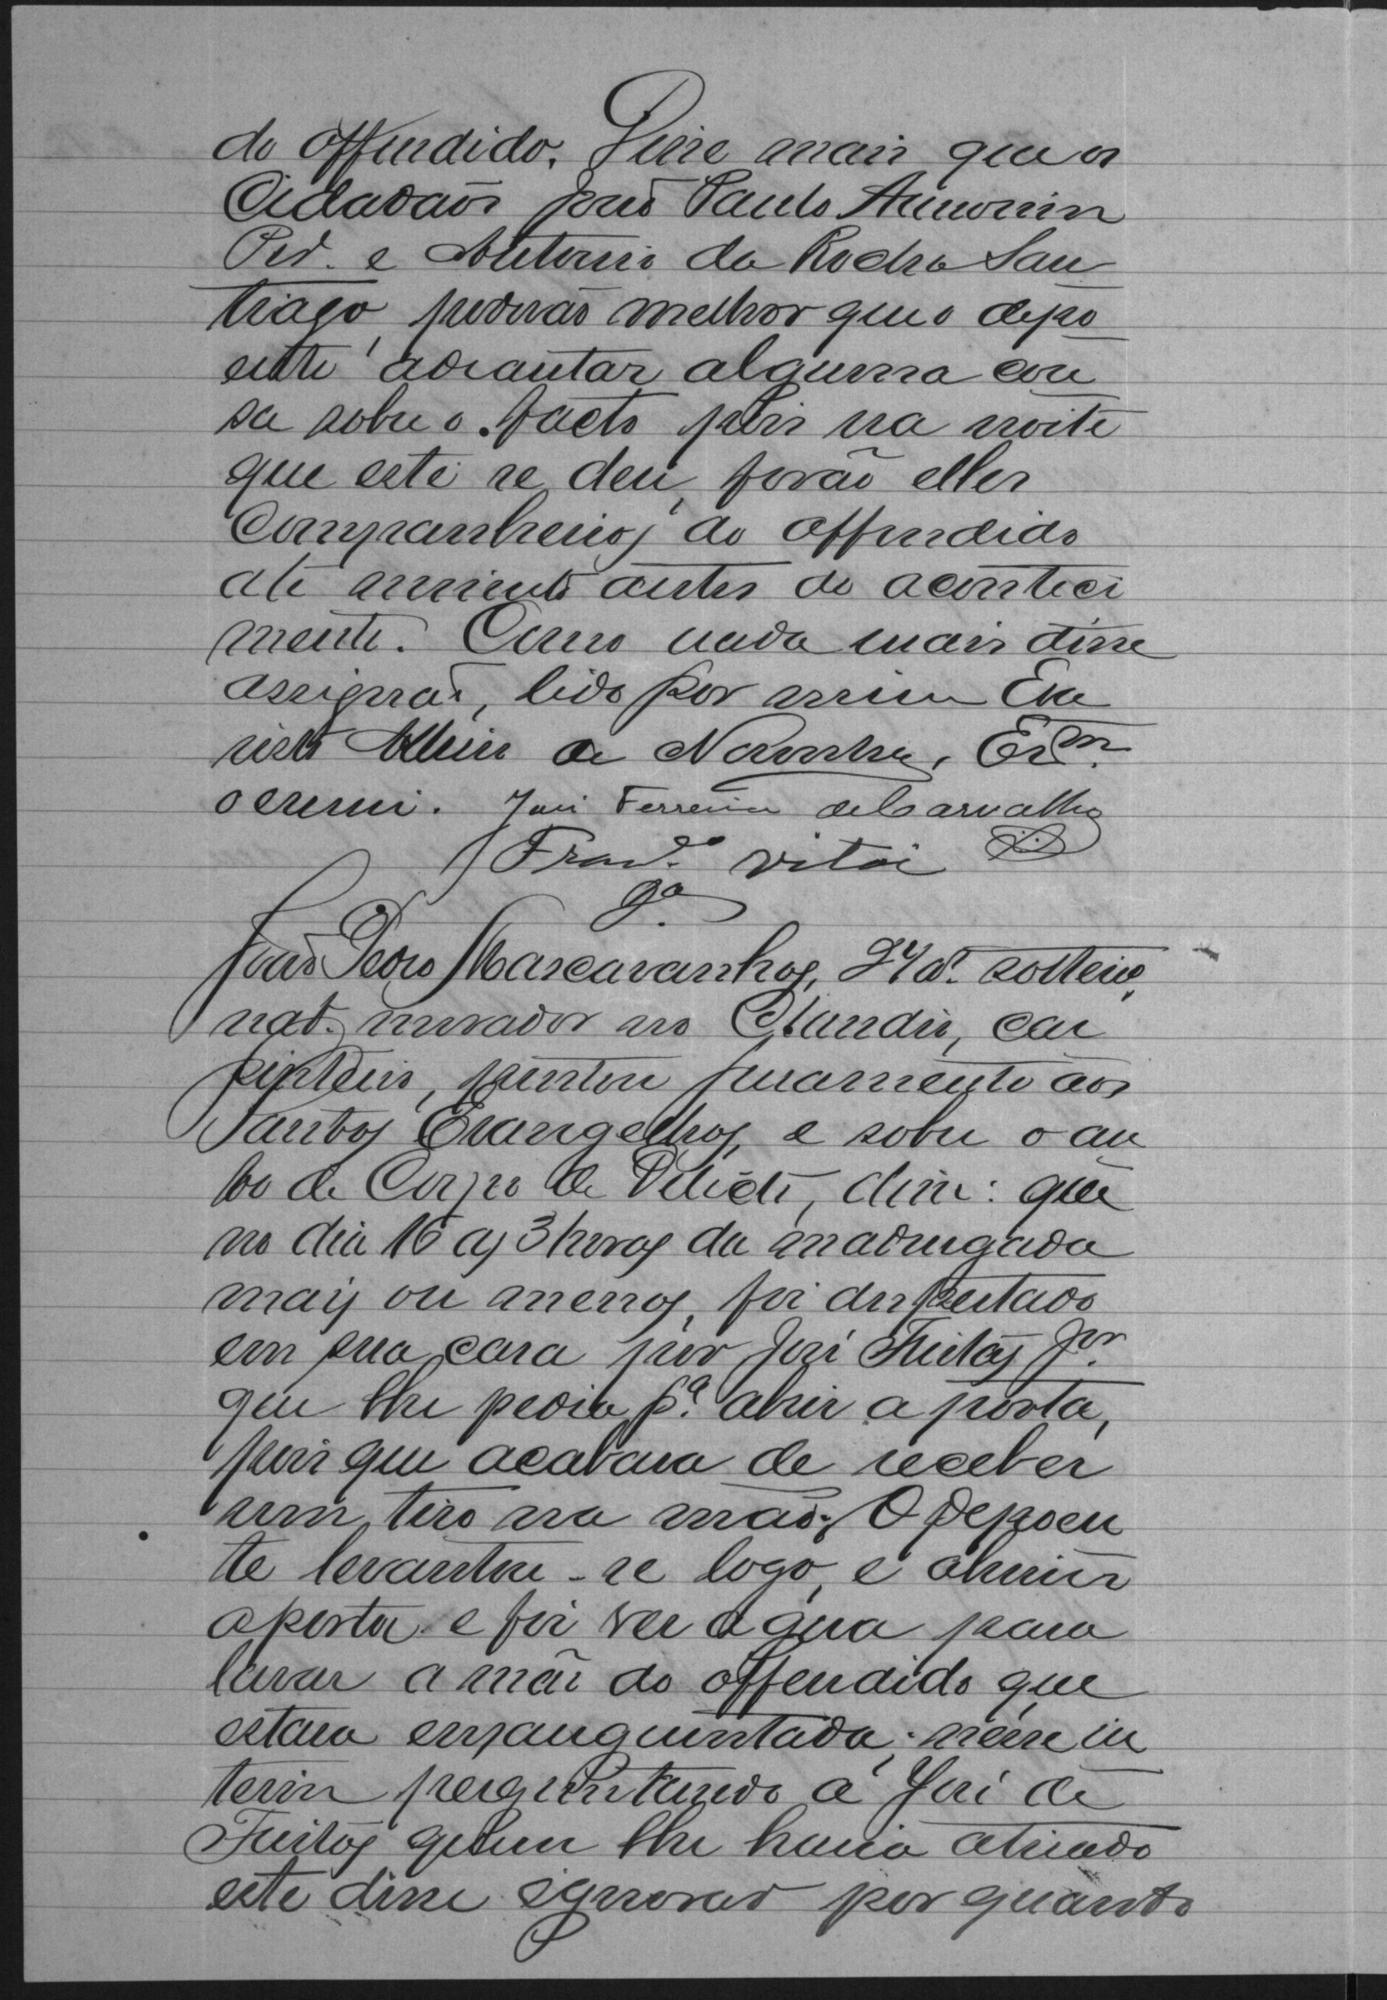 do offendido. Disse mais que os
Cidadãos João Paulo Amorim
e Antonio da Rocha San
tiago, poderão melhor que o depo
ente adiantar alguma cou
sa sobre o facto pois na noite
que este se deu, forão elles
Companheiros do offendido
até minutos antes do aconteci
mento. Como nada mais disse
assignão, lido por mim Eva
risto de Noronha, Escm.
o escrevi. José Ferreira de Carvalho
Franco. Vitoi
João Pedro Mascaranhas, 24 as. solteiro,
nat. morador no Glandis, car
pinteiro, prestou juramento aos
Santos Evangelhos, e sobre o au
to de Corpo de Delicto, disse: que
no dia 16 as 3 horas da madrugada
mais ou menos, foi despertado
em sua casa por José Freitas Jor.
que lhe pedia pa. abrir a porta,
pois que acabava de receber
um tiro na mão; O depoen
te levantou-se logo, e abrio
a porta e foi ver agua para
lavar a mão do offendido que
estava ensanguentada; nesse in
terim perguntando a José de
Freitas quem lhe havia atirado
este disse ignorar por quanto